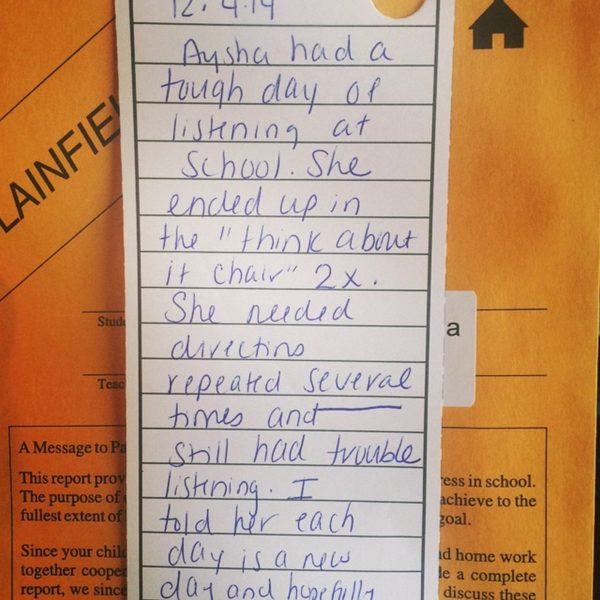 12.4.14
Aysha had a
tough day of
listening at
school. She
ended up in
the "think about
it chair" 2x.
She needed
directins
repeated several
times and
still had trouble
listening. I
told her each
day is a new
day and hopefully
LAINFIE
Stude
a
Teac
A Message to Pa
This report prov
ress in school.
The purpose of
achieve to the
fullest extent of
goal.
Since your chil
nd home work
together cooper
le a complete
report, we since
discuss these